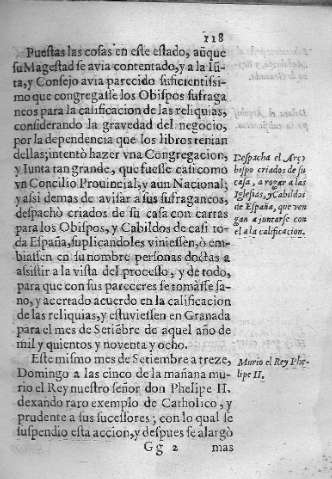 118
Puestas las cosas en este estado, aũque
su Magestad se avia contentado, y a la Iũ-
ta, y Consejo avia parecido suficientissi-
mo que congregasse los Obispos sufraga
neos para la calificacion de las reliquias,
considerando la gravedad del negocio,
por la dependencia que los libros tenian
dellas; intentò hazer vna Congregacion,
y Iunta tan grande, que fuesse casi como
vn Concilio Prouincial, y aun Nacional;
y assi demas de avisar a sus sufraganeos,
despachò criados de su casa con cartas
para los Obispos, y Cabildos de casi to-
da España, suplicandoles viniessen, ò em-
biassen en su nombre personas doctas a
assistir a la vista del processo, y de todo,
para que con sus pareceres se tomasse sa-
no, y acertado acuerdo en la calificacion
de las reliquias, y estuviessen en Granada
para el mes de Setiẽbre de aquel año de
mil y quientos y noventa y ocho.
Este mismo mes de Setiembre a treze,
Domingo a las cinco de la mañana mu-
rio el Rey nuestro señor don Phelipe II.
dexando raro exemplo de Catholico, y
prudente a sus sucessores; con lo qual se
suspendio esta accion, y despues se alargò
Gg 2 mas
Despacha el Arço
bispo criados de su
casa, a rogar a las
Iglesias, y Cabildos
de España, que ven
gan a juntarse con
el a la calificacion.
Murio el Rey Phe-
lipe II.